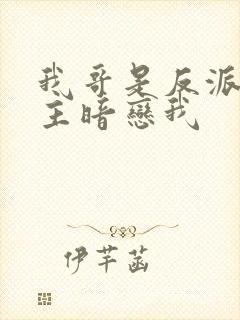 我哥是反派
主暗戀我
伊芊菡